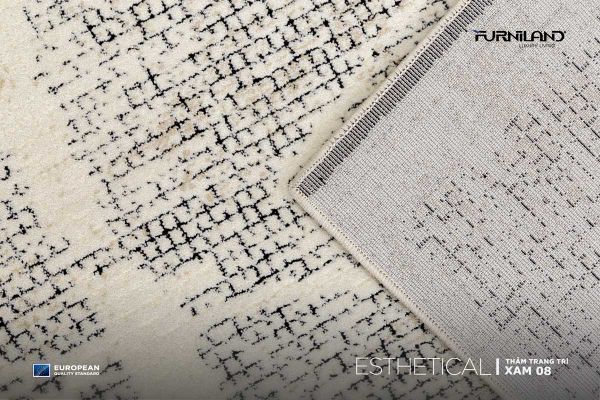 FURNILAND
LUXURY LIVING
EUROPEAN
QUALITY STANDARD
ESTHETICAL
THẢM TRANG TRÍ
XAM 08